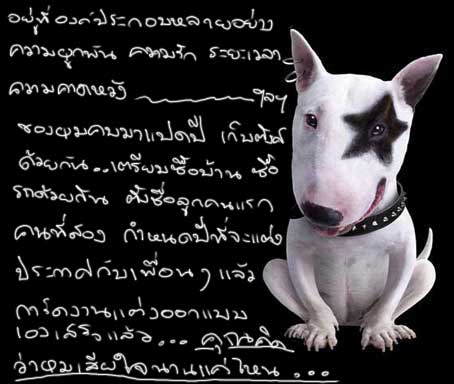 อยู่ที่องค์ประกอบหลายอย่าง
ความผูกพัน ความรัก ระยะเวลา
ความคาดหวัง ฯลฯ
ของผมคบมาแปดปี เก็บตังค์
ด้วยกัน..เตรียมซื้อบ้าน ซื้อ
รถด้วยกัน ตั้งชื่อลูกคนแรก
คนที่สอง กำหนดปีที่จะแต่ง
ประกาศกับเพื่อนๆ แล้ว
การ์ดงานแต่งออกแบบ
เองเสร็จแล้ว... คุณคิด
ว่าผมเสียใจนานแค่ไหน ...